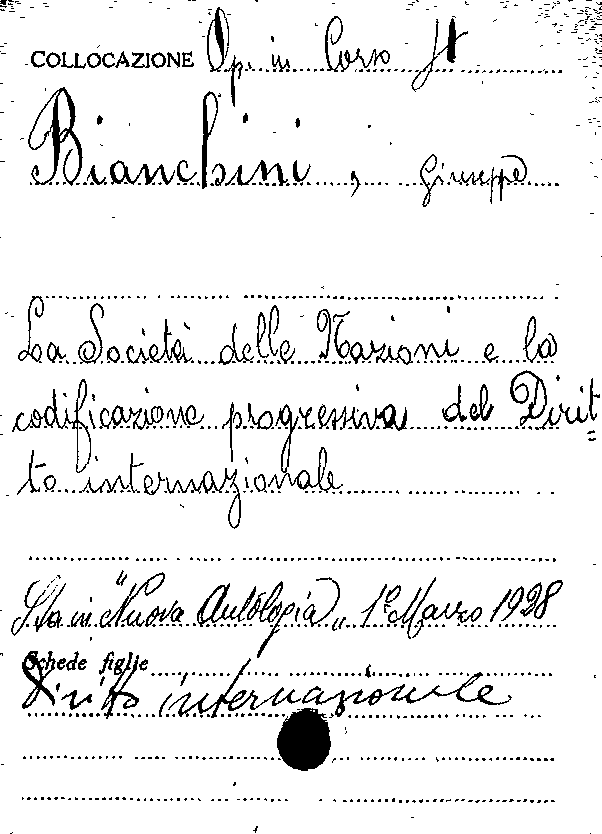 COLLOCAZIONE Op. in Corso It
Bianchini, Giuseppe
La Società delle Nazioni e la
codificazione progressiva del Dirit=
to internazionale
Sta in "Nuova Antologia" 1º Marzo 1928
Schede figlie
Diritto internazionale